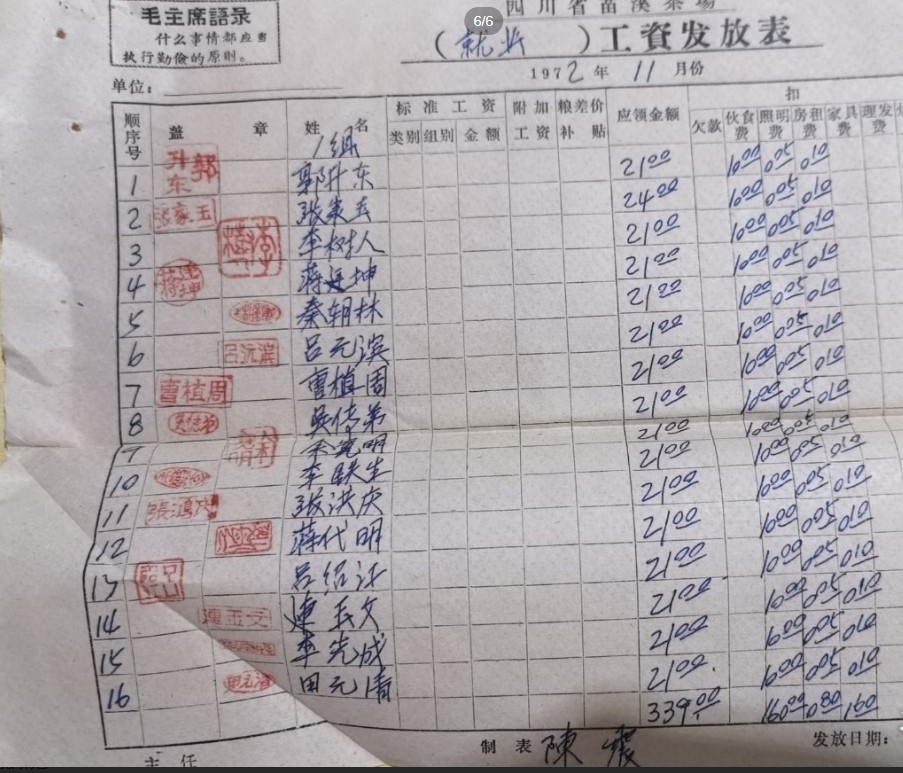 毛主席語录
什么事情都应当
执行勤俭的原则。
6/6
四川省苗溪茶場
(就业)工資发放表
1972年11月份
单位:
顺序号 盖章 姓名 标准工资 附加工资 粮差价补贴 应领金额 扣
类别 组别 金额 欠款 伙食费 照明费 房租费 家具费 理发费
1组
1 郭升东 郭升东 21.00 10.00 0.05 0.10
2 张家玉 张家玉 24.00 10.00 0.05 0.10
3 李树 李树人 21.00 10.00 0.05 0.10
4 蒋廷坤 21.00 10.00 0.05 0.10
5 秦朝林 21.00 10.00 0.05 0.10
6 吕元滨 吕元滨 21.00 10.00 0.05 0.10
7 曹植周 曹植周 21.00 10.00 0.05 0.10
8 吴传弟 21.00 10.00 0.05 0.10
9 明 21.00 10.00 0.05 0.10
10 李联生 21.00 10.00 0.05 0.10
11 張鴻庆 张洪庆 21.00 10.00 0.05 0.10
12 蒋代明 21.00 10.00 0.05 0.10
13 吕绍江 21.00 10.00 0.05 0.10
14 連玉文 連玉文 21.00 10.00 0.05 0.10
15 李先成 21.00 10.00 0.05 0.10
16 田元清 田元清 21.00 10.00 0.05 0.10
339.00 160.00 0.80 1.60
主任 制表 陳震 发放日期: